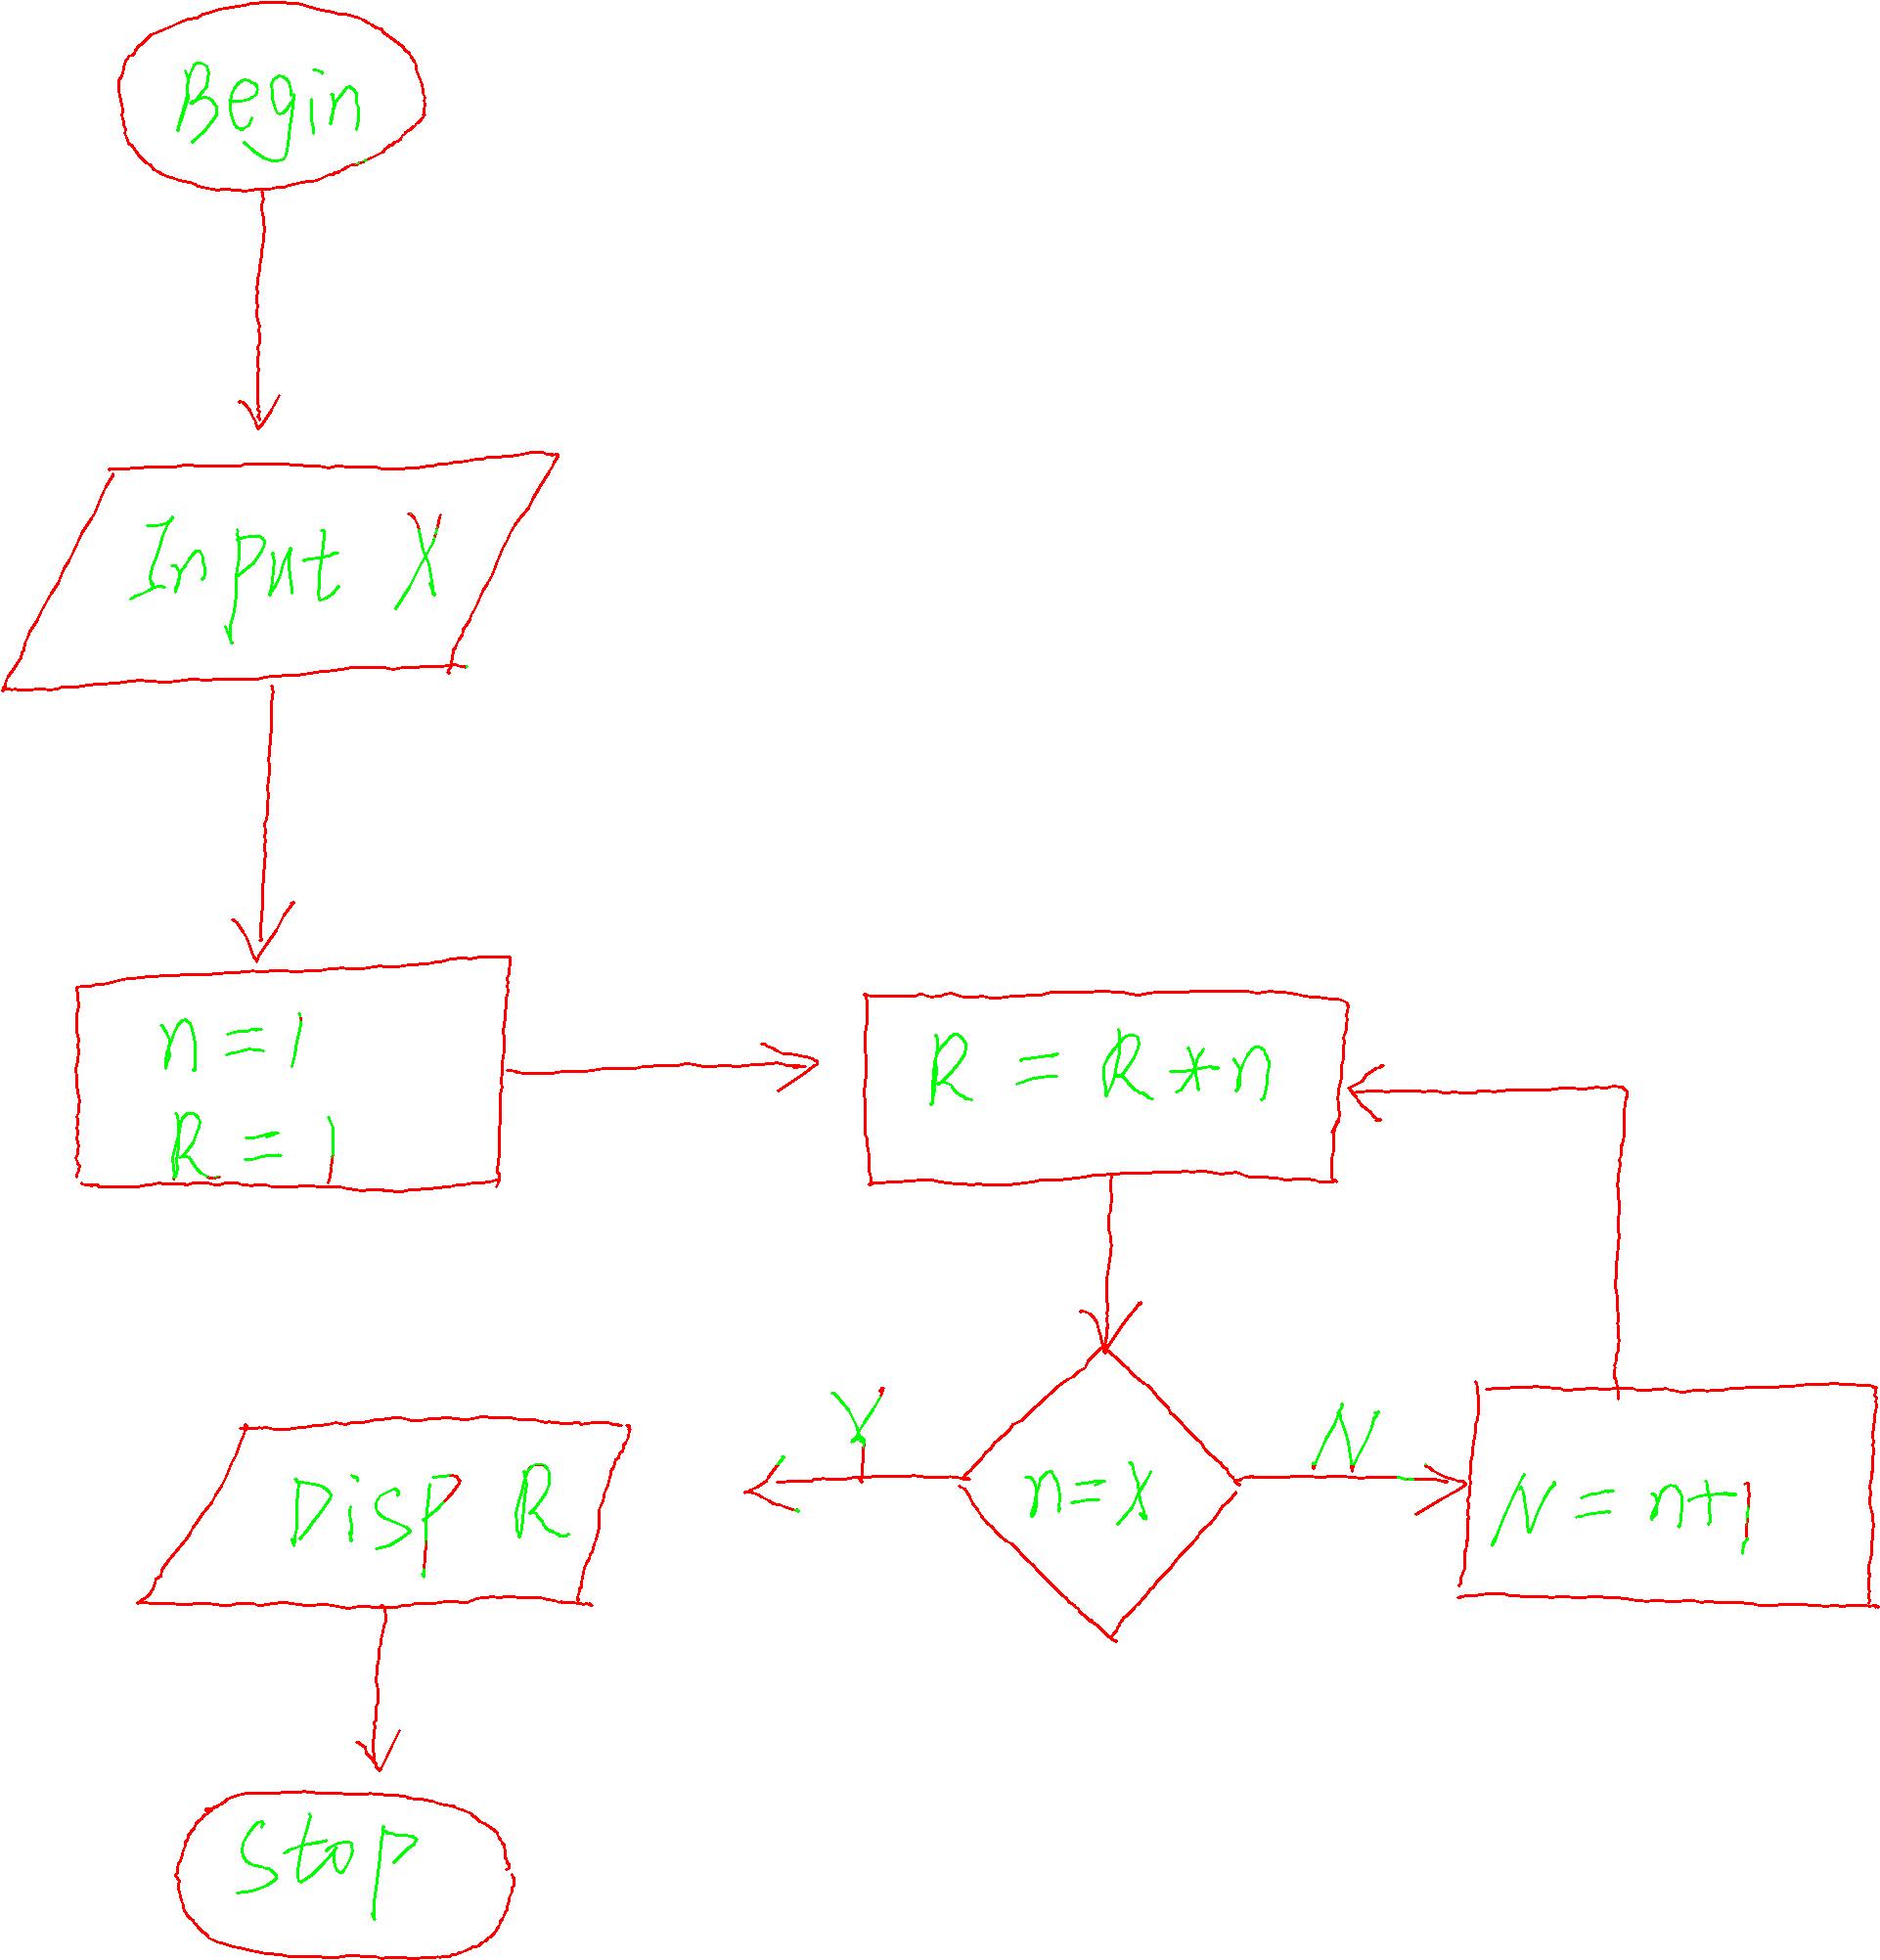 Begin
Input X
n = 1
R = 1
R = R * n
n = X
Y
N
N = n + 1
Disp R
Stop